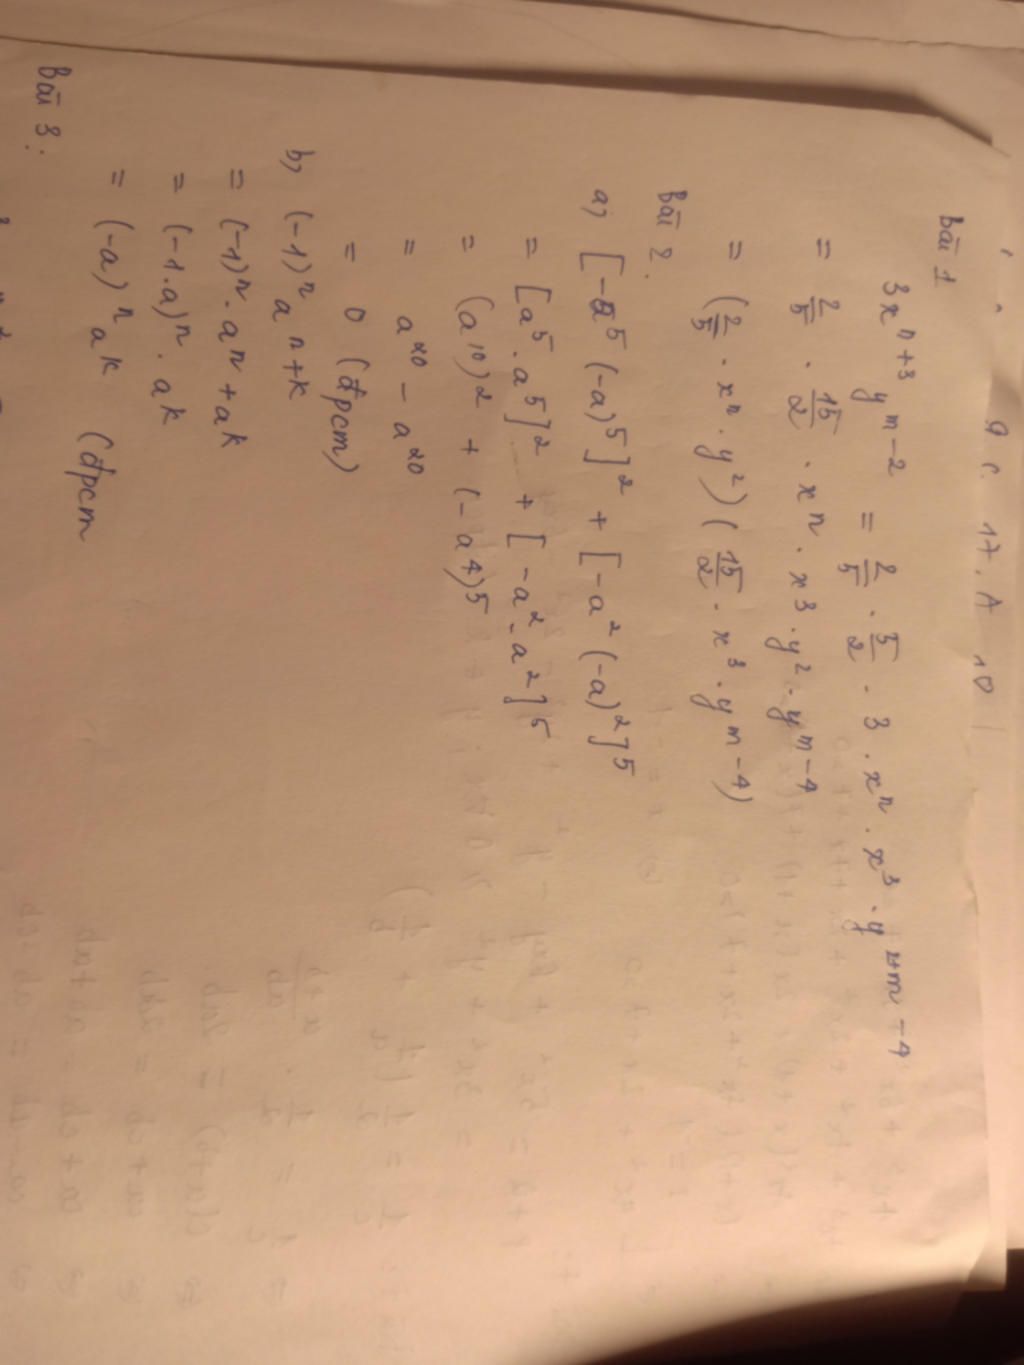 Bài 1
3xⁿ⁺³ yᵐ⁻² = 2/5 . 5/2 . 3 . xⁿ . x³ . y²⁺ᵐ⁻⁴
= 2/5 . 15/2 . xⁿ . x³ . y² . yᵐ⁻⁴
= (2/5 . xⁿ . y²) (15/2 . x³ . yᵐ⁻⁴)
Bài 2.
a, [-a⁵ (-a)⁵]² + [-a² (-a)²]⁵
= [a⁵ . a⁵]² + [-a² . a²]⁵
= (a¹⁰)² + (-a⁴)⁵
= a²⁰ - a²⁰
= 0 (đpcm)
b, (-1)ⁿ aⁿ⁺ᵏ
= (-1)ⁿ . aⁿ + aᵏ
= (-1.a)ⁿ . aᵏ
= (-a)ⁿ aᵏ (đpcm
Bài 3: